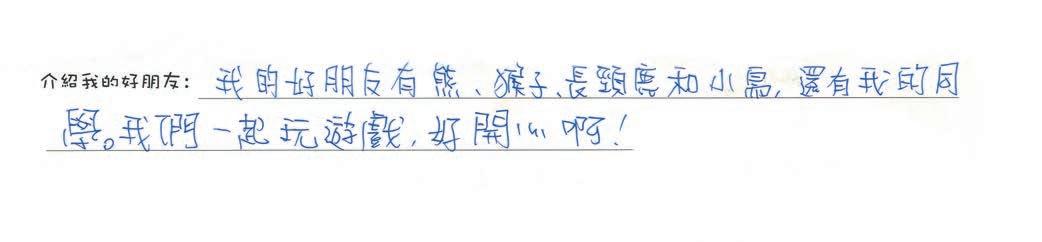 介紹我的好朋友：我的好朋友有熊、猴子、長頸鹿和小鳥，還有我的同
學。我們一起玩遊戲，好開心啊！